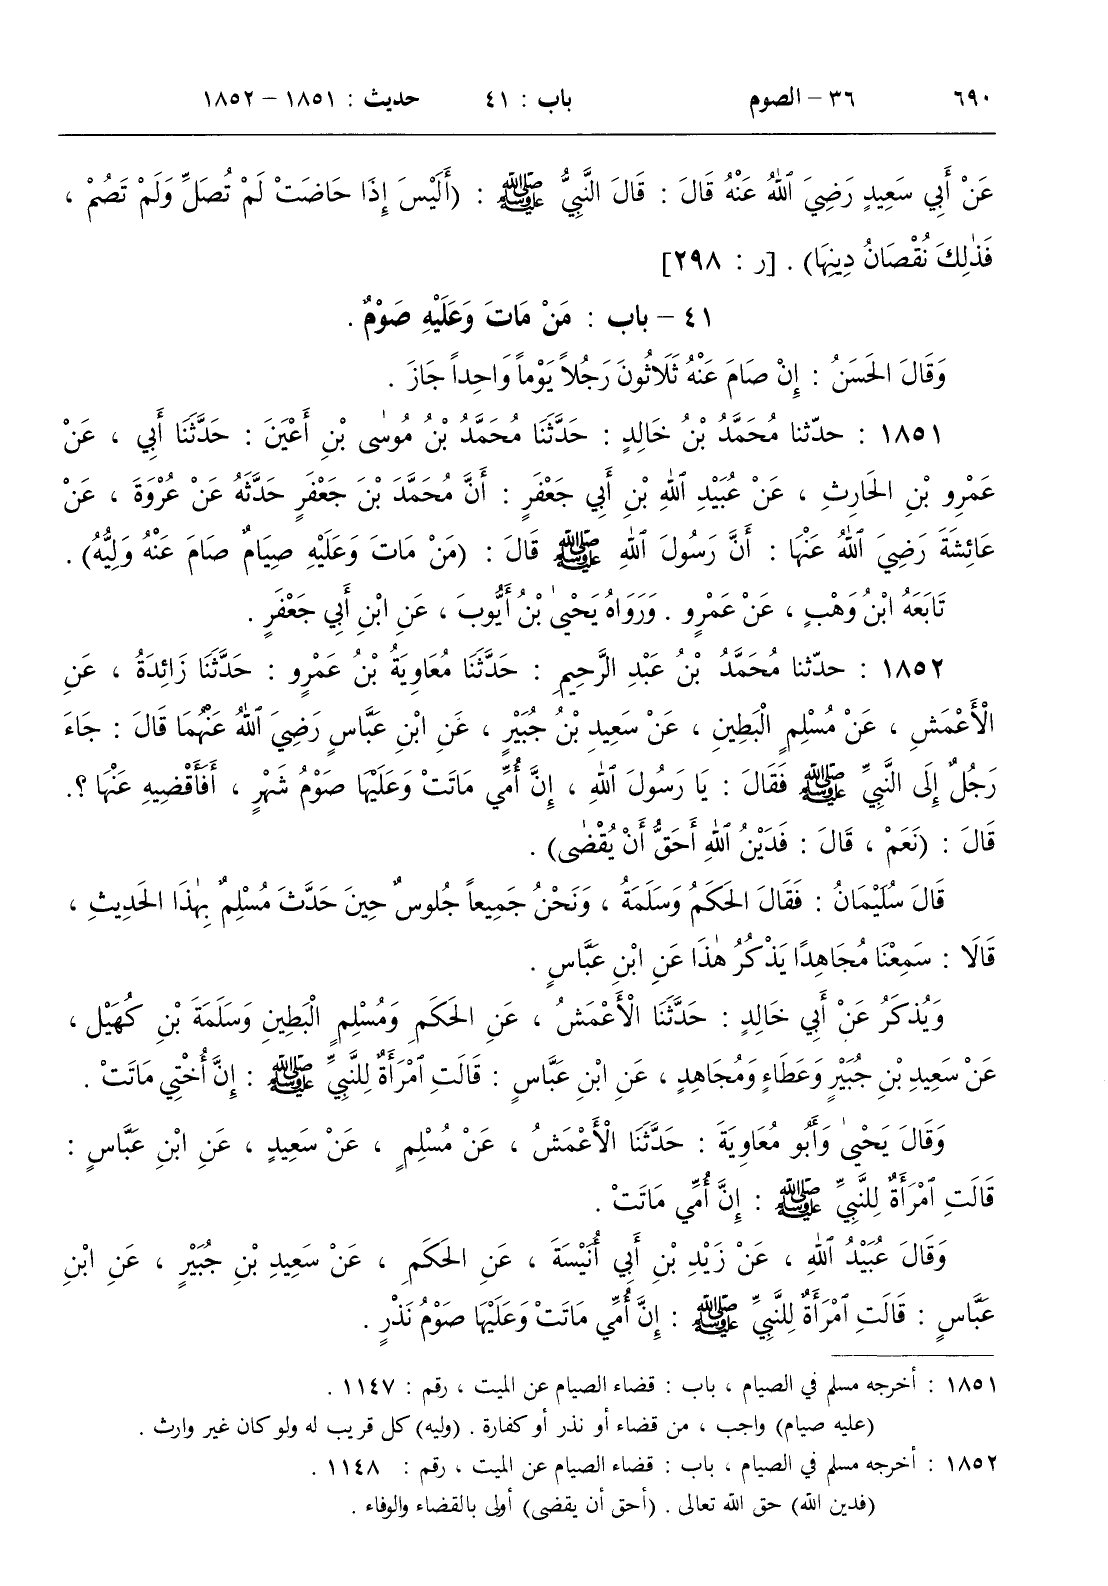 ٦٩٠ ٣٦ – الصوم باب : ٤١ حديث : ١٨٥١ – ١٨٥٢
عَنْ أَبِي سَعِيدٍ رَضِيَ ٱللهُ عَنْهُ قَالَ : قَالَ النَّبِيُّ ﷺ : (أَلَيْسَ إِذَا حَاضَتْ لَمْ تُصَلِّ وَلَمْ تَصُمْ ،
فَذٰلِكَ نُقْصَانُ دِينِهَا) . [ر : ٢٩٨]
٤١ – باب : مَنْ مَاتَ وَعَلَيْهِ صَوْمٌ .
وَقَالَ الحَسَنُ : إِنْ صَامَ عَنْهُ ثَلَاثُونَ رَجُلاً يَوْماً وَاحِداً جَازَ .
١٨٥١ : حدّثنا مُحَمَّدُ بْنُ خَالِدٍ : حَدَّثَنَا مُحَمَّدُ بْنُ مُوسٰى بْنِ أَعْيَنَ : حَدَّثَنَا أَبِي ، عَنْ
عَمْرِو بْنِ الحَارِثِ ، عَنْ عُبَيْدِ ٱللهِ بْنِ أَبِي جَعْفَرٍ : أَنَّ مُحَمَّدَ بْنَ جَعْفَرٍ حَدَّثَهُ عَنْ عُرْوَةَ ، عَنْ
عَائِشَةَ رَضِيَ ٱللهُ عَنْهَا : أَنَّ رَسُولَ ٱللهِ ﷺ قَالَ : (مَنْ مَاتَ وَعَلَيْهِ صِيَامٌ صَامَ عَنْهُ وَلِيُّهُ) .
تَابَعَهُ ابْنُ وَهْبٍ ، عَنْ عَمْرٍو . وَرَوَاهُ يَحْيىٰ بْنُ أَيُّوبَ ، عَنِ ابْنِ أَبِي جَعْفَرٍ .
١٨٥٢ : حدّثنا مُحَمَّدُ بْنُ عَبْدِ الرَّحِيمِ : حَدَّثَنَا مُعَاوِيَةُ بْنُ عَمْرٍو : حَدَّثَنَا زَائِدَةُ ، عَنِ
الْأَعْمَشِ ، عَنْ مُسْلِمٍ الْبَطِينِ ، عَنْ سَعِيدِ بْنُ جُبَيْرٍ ، عَنِ ابْنِ عَبَّاسٍ رَضِيَ ٱللهُ عَنْهُمَا قَالَ : جَاءَ
رَجُلٌ إِلَى النَّبِيِّ ﷺ فَقَالَ : يَا رَسُولَ ٱللهِ ، إِنَّ أُمِّي مَاتَتْ وَعَلَيْهَا صَوْمُ شَهْرٍ ، أَفَأَقْضِيهِ عَنْهَا ؟.
قَالَ : (نَعَمْ ، قَالَ : فَدَيْنُ ٱللهِ أَحَقُّ أَنْ يُقْضٰى) .
قَالَ سُلَيْمَانُ : فَقَالَ الحَكَمُ وَسَلَمَةُ ، وَنَحْنُ جَمِيعاً جُلوسٌ حِينَ حَدَّثَ مُسْلِمٌ بِهٰذَا الحَدِيثِ ،
قَالَا : سَمِعْنَا مُجَاهِدًا يَذْكُرُ هٰذَا عَنِ ابْنِ عَبَّاسٍ .
وَيُذكَرُ عَنْ أَبِي خَالِدٍ : حَدَّثَنَا الْأَعْمَشُ ، عَنِ الحَكَمِ وَمُسْلِمٍ الْبَطِينِ وَسَلَمَةَ بْنِ كُهَيْلٍ ،
عَنْ سَعِيدِ بْنِ جُبَيْرٍ وَعَطَاءٍ وَمُجَاهِدٍ ، عَنِ ابْنِ عَبَّاسٍ : قَالَتِ ٱمْرَأَةٌ لِلنَّبِيِّ ﷺ : إِنَّ أُخْتِي مَاتَتْ .
وَقَالَ يَحْيىٰ وَأَبُو مُعَاوِيَةَ : حَدَّثَنَا الْأَعْمَشُ ، عَنْ مُسْلِمٍ ، عَنْ سَعِيدٍ ، عَنِ ابْنِ عَبَّاسٍ :
قَالَتِ ٱمْرَأَةٌ لِلنَّبِيِّ ﷺ : إِنَّ أُمِّي مَاتَتْ .
وَقَالَ عُبَيْدُ ٱللهِ ، عَنْ زَيْدِ بْنِ أَبِي أُنَيْسَةَ ، عَنِ الحَكَمِ ، عَنْ سَعِيدِ بْنِ جُبَيْرٍ ، عَنِ ابْنِ
عَبَّاسٍ : قَالَتِ ٱمْرَأَةٌ لِلنَّبِيِّ ﷺ : إِنَّ أُمِّي مَاتَتْ وَعَلَيْهَا صَوْمُ نَذْرٍ .
١٨٥١ : أخرجه مسلم في الصيام ، باب : قضاء الصيام عن الميت ، رقم : ١١٤٧ .
(عليه صيام) واجب ، من قضاء أو نذر أو كفارة . (وليه) كل قريب له ولو كان غير وارث .
١٨٥٢ : أخرجه مسلم في الصيام ، باب : قضاء الصيام عن الميت ، رقم : ١١٤٨ .
(فدين الله) حق الله تعالى . (أحق أن يقضى) أولى بالقضاء والوفاء .